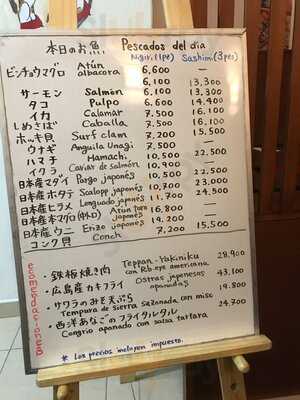 本日のお魚 Pescados del día
Nigiri(1pc) Sashimi(3pcs)
ビンチョウマグロ Atún albacora 6,600 —
サーモン Salmón 6,100 13,300
タコ Pulpo 6,600 13,300
イカ Calamar 7,500 14,400
しめさば Caballa 7,500 16,100
ホッキ貝 Surf clam 7,200 15,500
ウナギ Anguila Unagi 7,500 —
ハマチ Hamachi 10,500 22,500
イクラ Caviar de salmón 10,900 —
日本産マダイ Pargo japonés 10,500 22,500
日本産ホタテ Scalopp japonés 10,700 23,000
日本産ヒラメ Lenguado japonés 11,700 24,500
日本産本マグロ(中トロ) Atún toro japonés 16,800 —
日本産ウニ Erizo japonés 19,200 —
コンク貝 Conch 7,200 15,500
RECOMENDACIONES
・鉄板焼き肉 Teppan-Yakiniku con Rib eye americana 28,900
・広島産カキフライ Ostras japonesas apanadas 43,100
・サワラのみそ天ぷら Tempura de sierra sazonada con miso 19,800
・西洋あなごのフライタルタル Congrio apanado con salsa tartara 24,700
* Los precios incluyen impuesto.